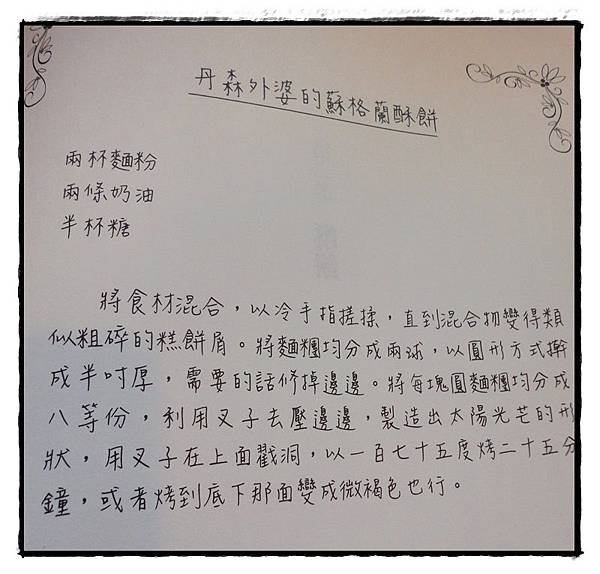 丹森外婆的蘇格蘭酥餅
兩杯麵粉
兩條奶油
半杯糖
將食材混合，以冷手指搓揉，直到混合物變得類
似粗碎的糕餅屑。將麵糰均分成兩球，以圓形方式擀
成半吋厚，需要的話修掉邊邊。將每塊圓麵糰均分成
八等份，利用叉子去壓邊邊，製造出太陽光芒的形
狀，用叉子在上面戳洞，以一百七十五度烤二十五分
鐘，或者烤到底下那面變成微褐色也行。